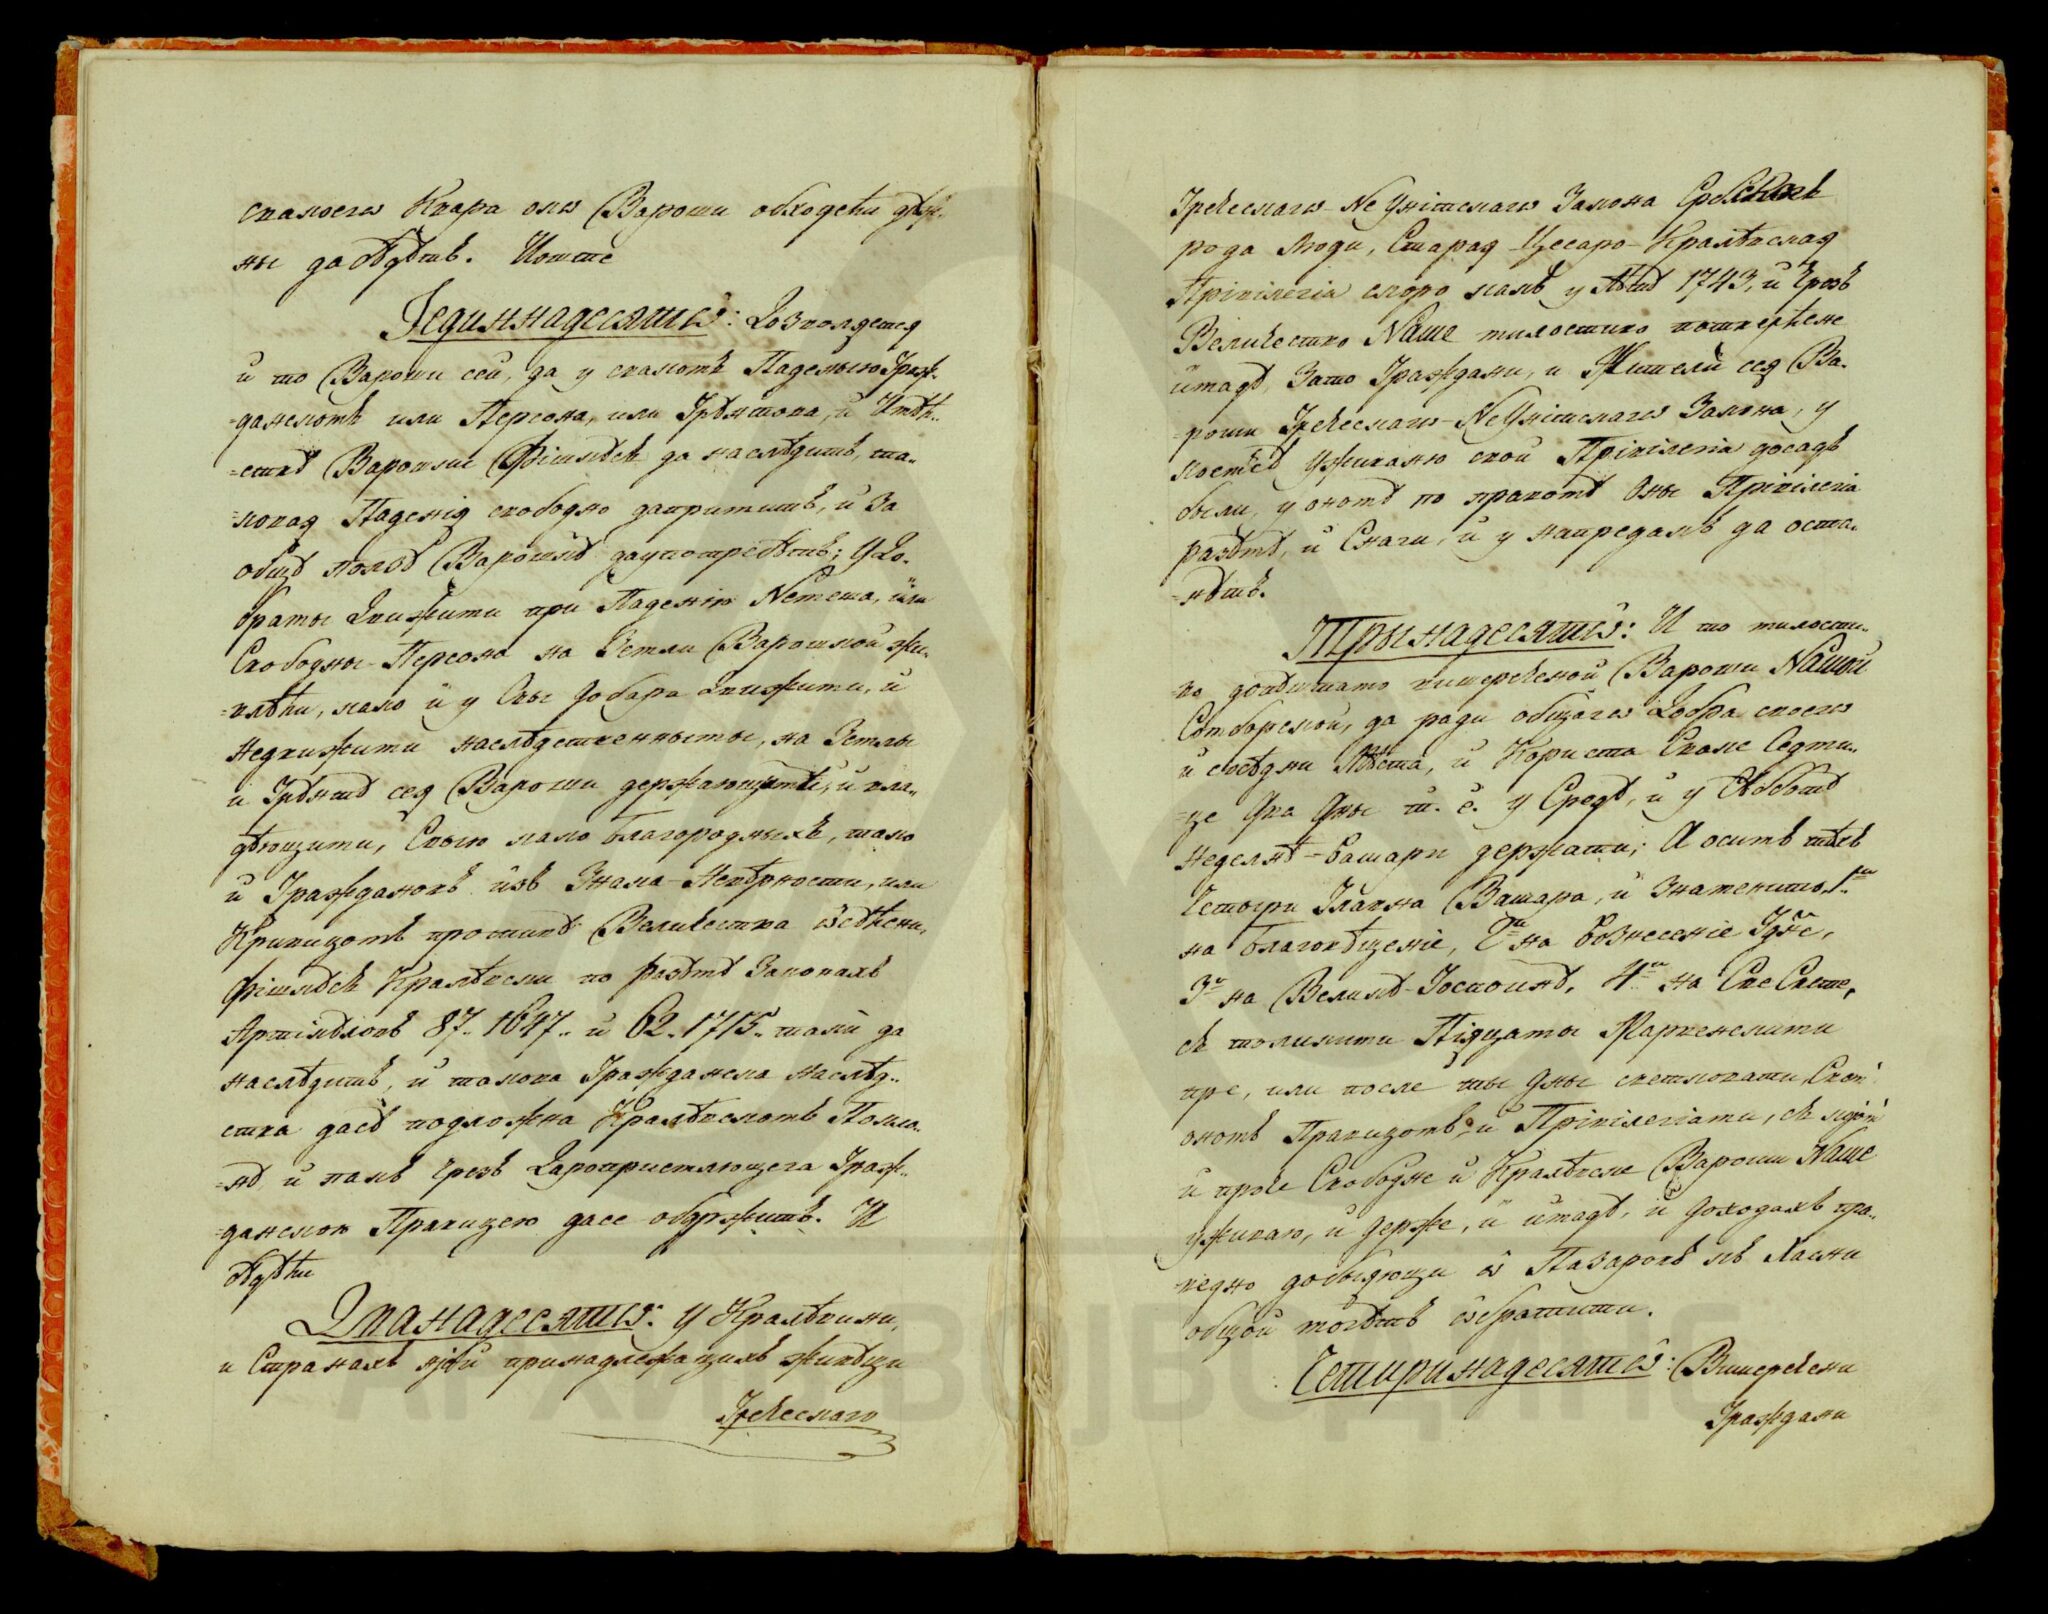 свакогѡ Квара овѡ Вароши обходећи дѣж-
ны да бꙋдꙋтъ. Иоште
Јединнадесятѡ: Дозволяется
и то Вароши сей, да у свакомъ Паденію Граж-
=данскомъ или Персона, или Грꙋнтова, и Имѣн-
=ствꙋ Варошке Фішкꙋсъ да наслѣдитъ, та-
=ковая Паденія свободно да приметъ, и за
общꙋ ползꙋ Варошкꙋ да употребѣтъ; У До-
браты движити при Паденію Немеша, или
Свободны Персона на Земли Варошкой жи-
=вѣћи, како и у Свы Добара движити, и
недвижити наслѣдственныты, на Земли
и Грꙋнтꙋ сея Вароши держающити, и вла-
дѣющити, Свою како благородныхъ, тако
и Гражданохъ изъ Знака Невѣрности, или
Кривицомъ противꙋ Величества ѿсꙋђени,
Фішкꙋсъ Кралѣвски по разꙋмꙋ Законахъ
Артікꙋловъ 87. 1647. и 62. 1715. такой да
наслѣдитъ, и такова Гражданска наслѣд-
ства дасꙋ подложна Кралѣвскомъ Покло-
=нꙋ и пакъ чрезъ Даропристающега Граж-
=данском Правицею дасе обдржитъ. И
бꙋдꙋћи
Дванадесятѡ: У Кралѣвини,
и Странахъ нѣой принадлежащихъ живꙋщи
Греческаго
Греческагѡ Не Унітскагѡ Закона Сербскогъ
рода Люди, Старая Цесаро-Кралѣвская
Прівілегіа скоро пакъ у Лѣтꙋ 1743, и чрезъ
Величество Наше милостиво потверђене
имадꙋ, Зато Граждани, и Жители сея Ва-
роши Греческагѡ НеУнітскагѡ Закона, у
коемꙋ уживаню свои Прівілегіа досадъ
были, у ономꙋ по правомꙋ оны Прівілегіа
разꙋмꙋ, и Снаги, и у напредакъ да оста-
=нꙋтъ.
Трынадесятѡ: И то милости-
во допꙋштамо вишереченой Вароши Нашой
Сомборской, да ради общагѡ Добра своегѡ
и сосѣдни Мѣста, и Користа Сваке Седми-
=це два дны т. е. у Средꙋ, и у Сꙋбботꙋ
неделнѣ башари держати; А осимъ тѣхъ
Четыри Главна Вашара, и знаменито, 1ᵛᵒ
на благовѣщеніе, 2ᵒ на вознесеніе Гдне,
3ᵒ на Великꙋ-Госпоинꙋ, 4ᵒ на Све Свете,
съ толикими Піяцаты Марвенскити
пре, или после ты дны светковати, Свом
ономъ Правицомъ и Прівілегіами, съ којом
и прочe Свободне и Кралѣвске Вароши Наше
уживаю, и держе, и имадꙋ, и доходахъ пра-
=ведно добыяющи ѿ Пазаровъ къ Касни
общой могꙋтъ ѿбратити.
Четиринадесятѡ: Вишеречени
Граждани
АРХИВ ВОЈВОДИНЕ